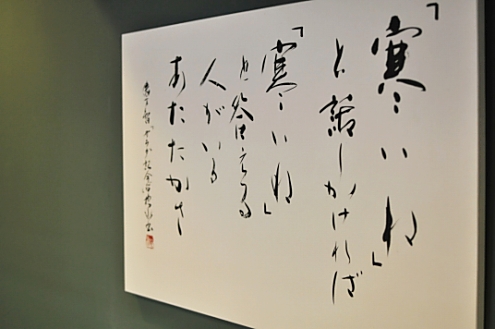 「寒いね」
と話しかければ
「寒いね」
と答える
人がいる
あたたかさ